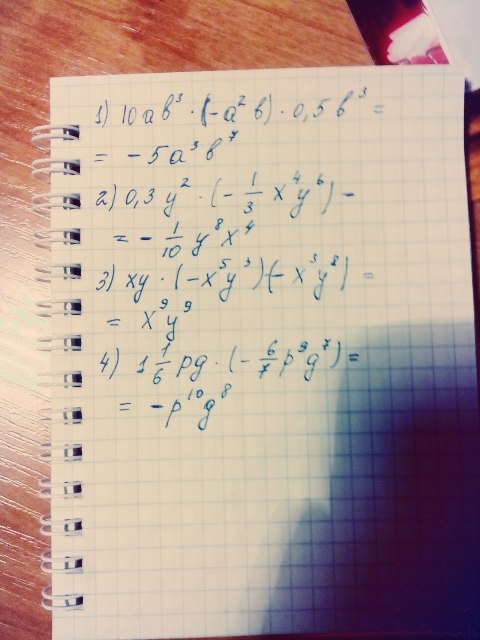 1) 10ab³ · (-a²b) · 0,5b³ =
= -5a³b⁷
2) 0,3y² · (-1/3 x⁴y⁶) -
= -1/10 y⁸x⁴
3) xy · (-x⁵y³)(-x³y⁸) =
= x⁹y⁹
4) 1 1/6 pg · (-6/7 p⁹g⁷) =
= -p¹⁰g⁸